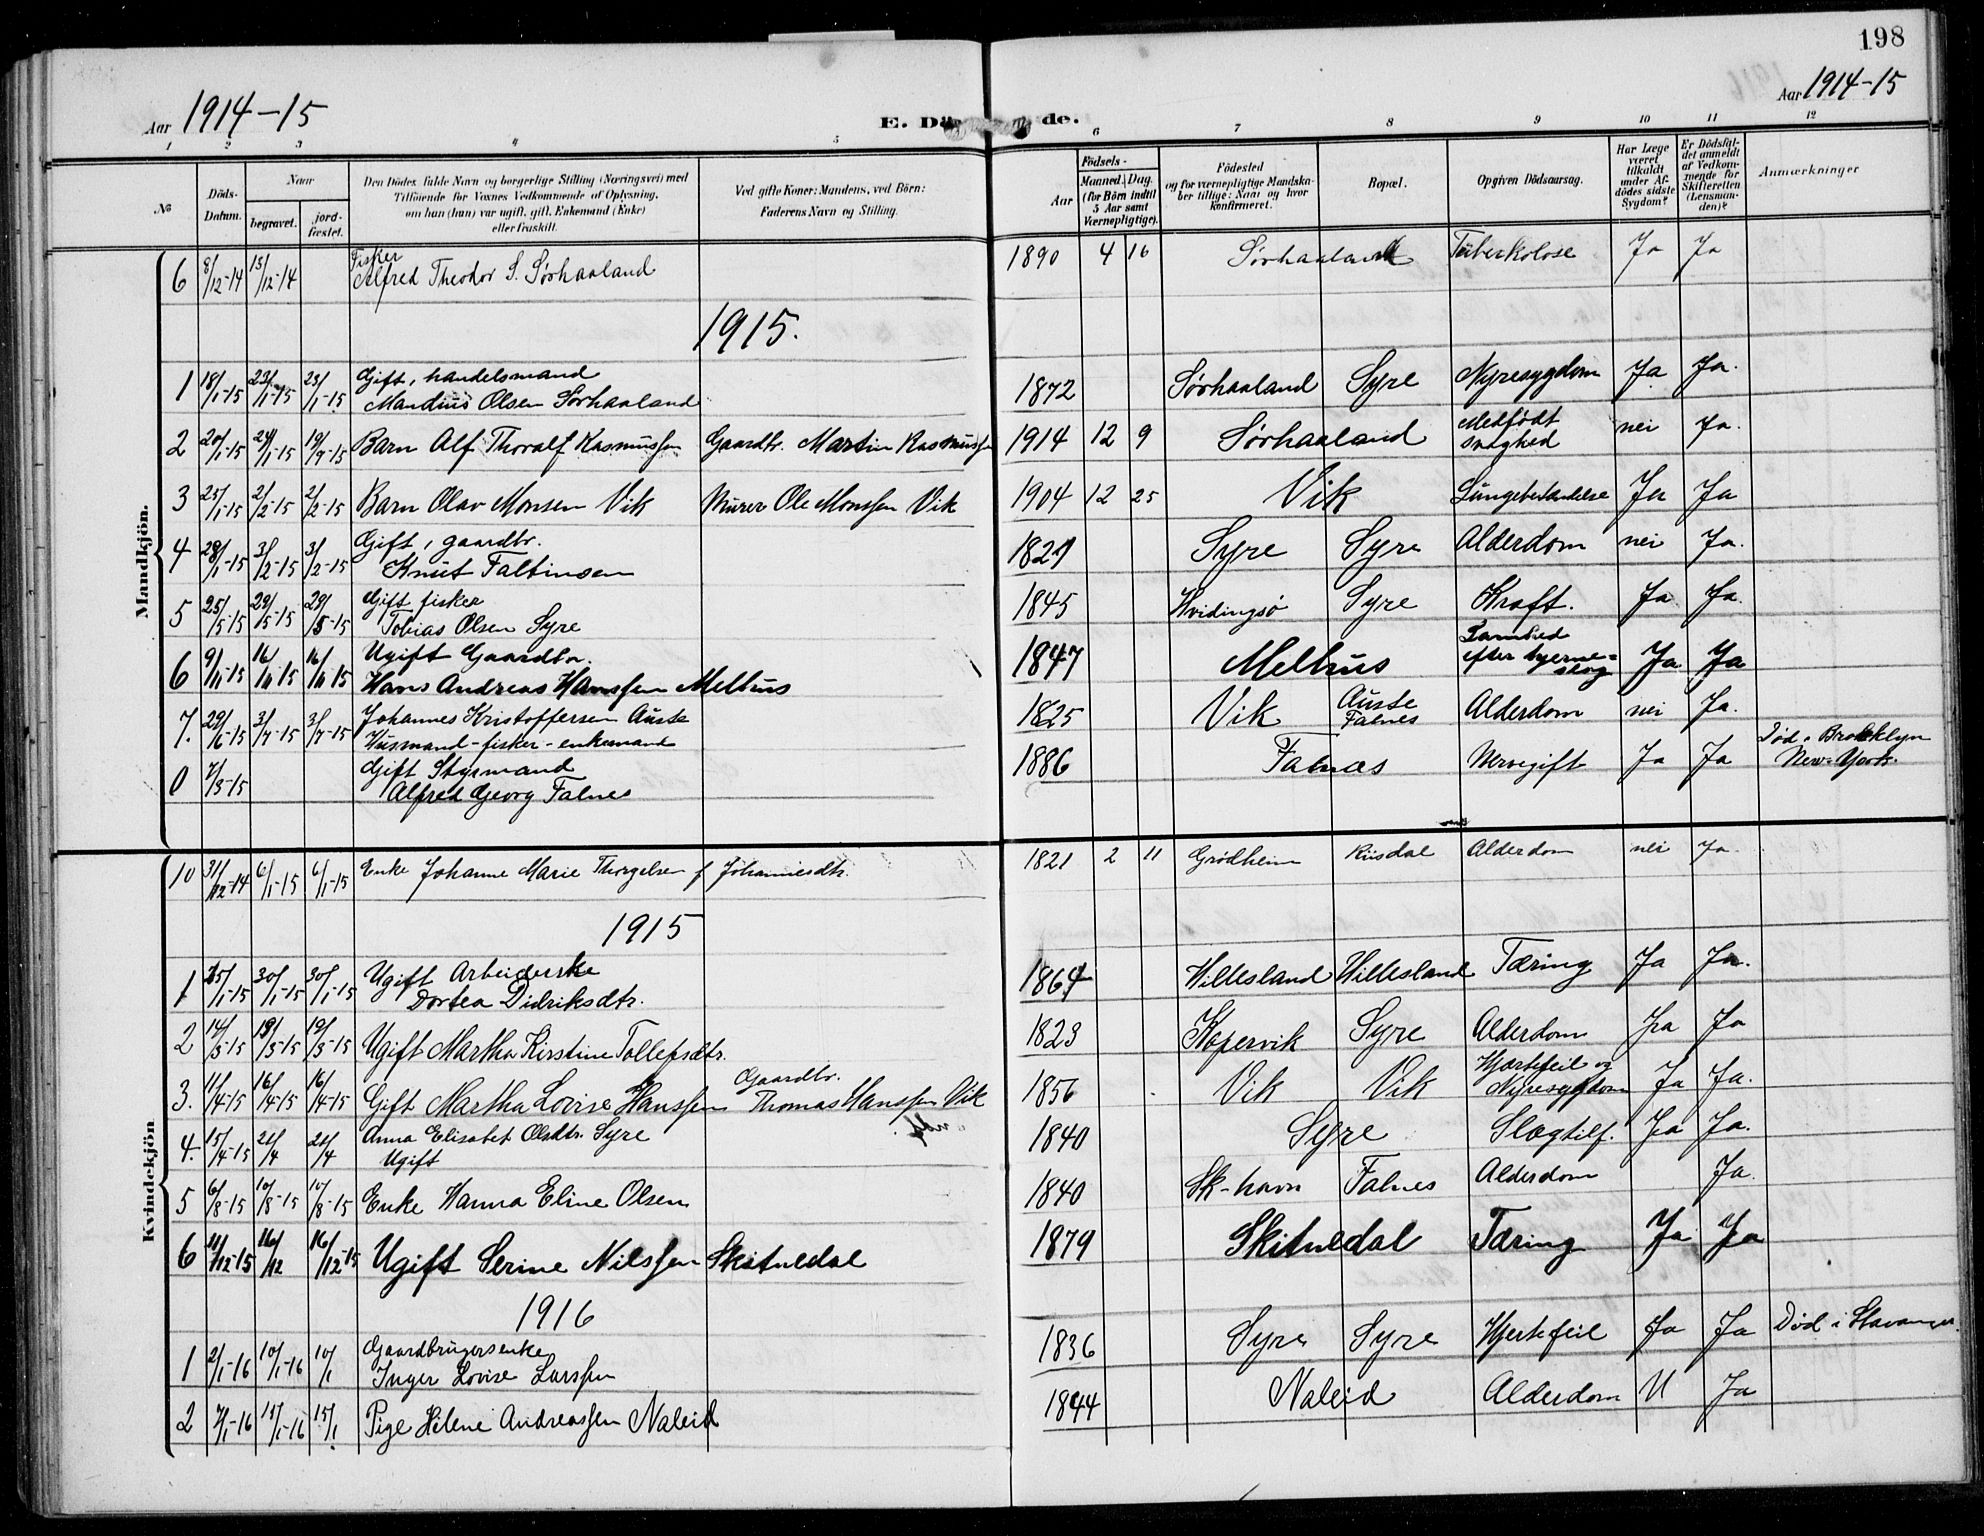 198
Aar 1914-15
E. Dö
de.
Aar 1914-15
1 2 3 4 5 6 7 8 9 10 11 12
No
Döds-Datum.
Naar
begravet.
jord-fæstet.
Den Dödes fulde Navn og borgerlige Stilling (Næringsvei) med
Tilföiende for Voxnes Vedkommende af Oplysning,
om han (hun) var ugift, gift, Enkemand (Enke)
eller fraskilt.
Ved gifte Koner: Mandens, ved Börn:
Faderens Navn og Stilling.
Aar
Födsels-
Maaned. Dag.
(for Börn indtil
5 Aar samt
Værnepligtige).
Födested
og for værnepligtige Mandska-
ber tillige: Naar og hvor
konfirmeret.
Bopæl.
Opgiven Dödsaarsag.
Har Læge
været
tilkaldt
under Af-
dödes sidste
Sygdom?
Er Dödsfal-
det anmeldt
af Vedkom-
mende for
Skifteretten
(Lensman-
den)?
Anmærkninger
Mandkjön.
6 8/12-14 13/12-14 Fisker Alfred Theodor S. Sørhaaland 1890 4 16 Sørhaaland Tuberkolose Ja Ja
1915.
1 18/1-15 23/1-15 23/1-15 Gift, handelsmand Mandius Olsen Sørhaaland 1872 Sørhaaland Syre Nyresygdom Ja Ja.
2 20/1-15 24/1-15 19/9-15 Barn Alf Thoralf Rasmussen Gaardbr. Martin Rasmussen 1914 12 9 Sørhaaland Medfødt svaghed nei Ja.
3 25/1-15 2/2-15 2/2-15 Barn Olav Monsen Vik Murer Ole Monssen Vik 1904 12 25 Vik Lungebetændelse Ja Ja
4 28/1-15 3/2-15 3/2-15 Gift, gaardbr. Knut Faltinsen 1827 Syre Syre Alderdom nei Ja.
5 25/5-15 29/5-15 29/5-15 Gift fisker Tobias Olsen Syre 1845 Hvidingsø Syre Kræft. Ja Ja.
6 9/11-15 16/11-15 16/11-15 Ugift Gaardbr. Hans Andreas Hanssen Melhus 1847 Melhus Lamhed efter hjerneslag Ja Ja
7. 29/6-15 3/7-15 3/7-15 Johannes Kristoffersen Auste Husmand-fisker-enkemand 1825 Vik Auste Falnes Alderdom nei Ja.
0 7/3-15 Gift Styrmand Alfred Georg Falnes 1886 Falnæs Nervegift Ja Ja Død i Brooklyn New-York.
Kvindekjön
10 31/12-14 6/1-15 6/1-15 Enke Johanne Marie Thorgelsen f Johannesdtr. 1821 2 11 Grødheim Riisdal Alderdom nei Ja.
1915
1 25/1-15 30/1-15 30/1-15 Ugift Arbeiderske Dortea Didriksdtr. 1864 Hillesland Hillesland Tæring Ja Ja.
2 14/3-15 19/3-15 19/3-15 Ugift Martha Kirstine Tollefsdtr. 1823 Kopervik Syre Alderdom Ja Ja
3. 11/4-15 16/4-15 16/4-15 Gift Martha Lovise Hanssen Gaardbr. Thomas Hanssen Vik 1856 Vik Vik Hjertefeil og Nyresygdom Ja Ja.
4. 15/4-15 21/4 21/4 Anna Elisabet Olsdtr. Syre Ugift 1840 Syre Slagtilf. Ja Ja.
5 6/8-15 10/8-15 10/8-15 Enke Hanna Eline Olsen 1840 Sk-havn Falnes Alderdom Ja.
6 11/12-15 16/12 16/12-15 Ugift Serine Nilssen Skitnedal 1879 Skitnedal Tæring Ja Ja
1916
1 2/1-16 10/1-16 10/1 Gaardbrugersenke Inger Lovise Larssen 1836 Syre Syre Hjertefeil Ja Ja Død i Stavanger.
2 7/1-16 15/1-16 15/1 Pige Helene Andreassen Naleid 1844 Naleid Alderdom N Ja